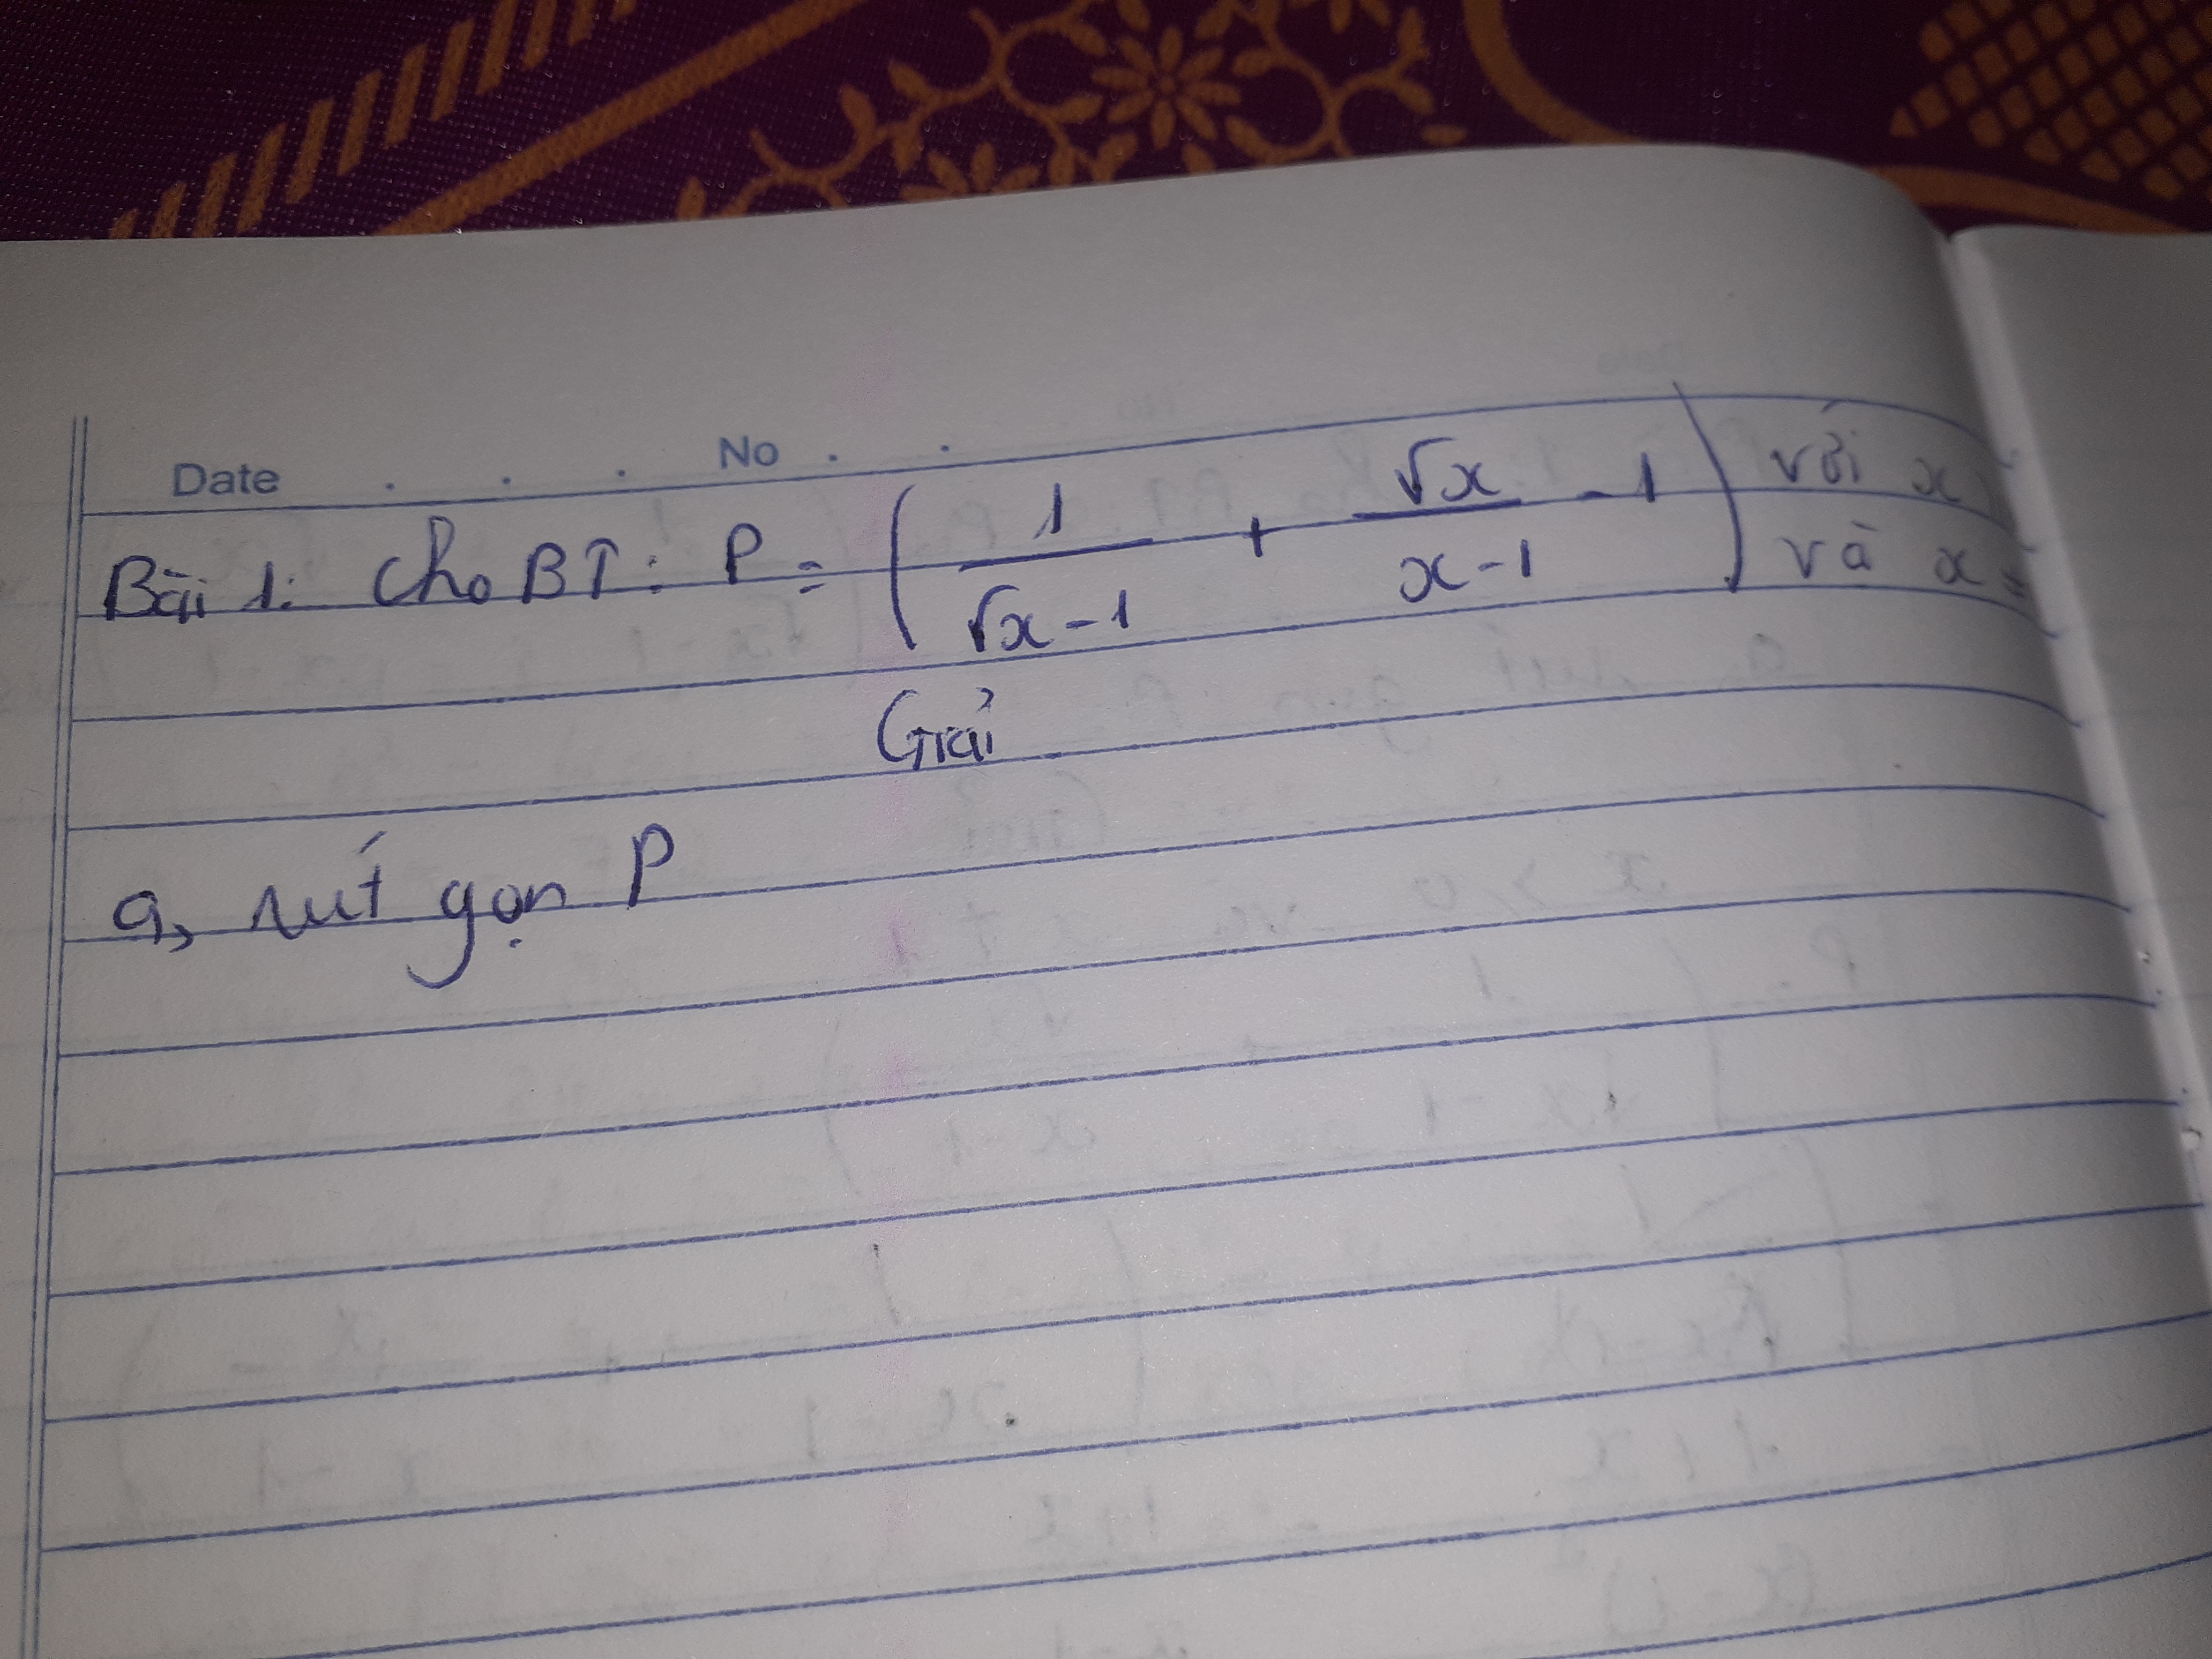 Date . . . No . .
Bài 1: Cho BT: P = ( 1/(√x-1) + √x/(x-1) - 1 ) với x
và x
Giải
a, rút gọn P